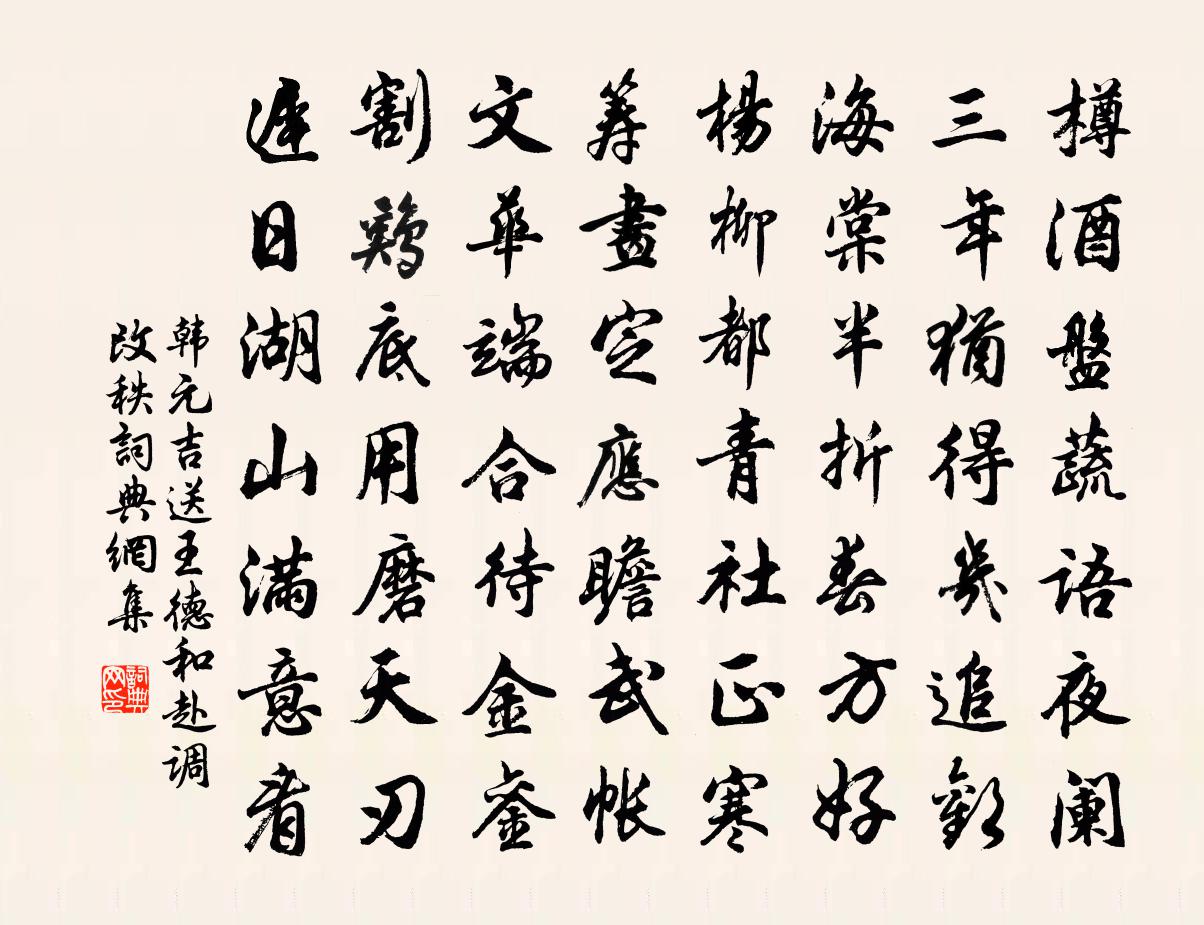 樽酒盤蔬語夜阑
三年猶得幾追歡
海棠半折春方好
楊柳都青社正寒
筹畫定應瞻武帳
文華端合待金銮
割鷄底用磨天刃
遲日湖山满意看
韩元吉送王德和赴调
改秩詞典網集
詞典网印